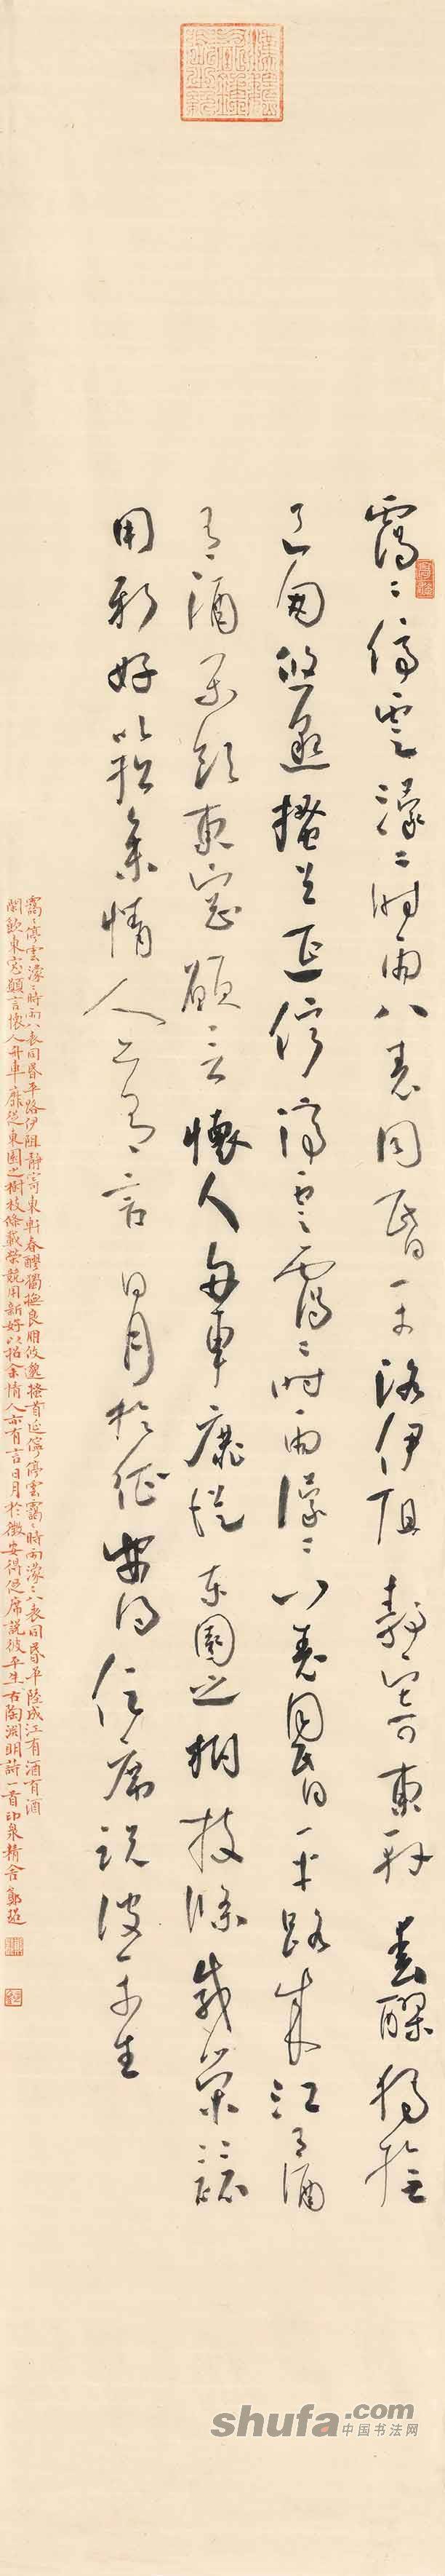 靄〻停雲濛〻時雨八表同昏平路伊阻靜寄東軒春醪獨撫
良朋悠邈搔首延佇停雲靄〻時雨濛〻八表同昏平路成江有酒
有酒閑飲東窗願言懷人舟車靡從東園之樹枝條載榮競
用新好以招余情人亦有言日月於征安得促席說彼平生
靄〻停雲濛〻時雨八表同昏平路伊阻靜寄東軒春醪獨撫良朋悠邈搔首延佇停雲靄〻時雨濛〻八表同昏平陸成江有酒有酒
閑飲東窗願言懷人舟車靡從東園之樹枝條載榮競用新好以招余情人亦有言日月於徵安得促席說彼平生右陶淵明詩一首印泉精舍鄭
shufa.com
中国书法网